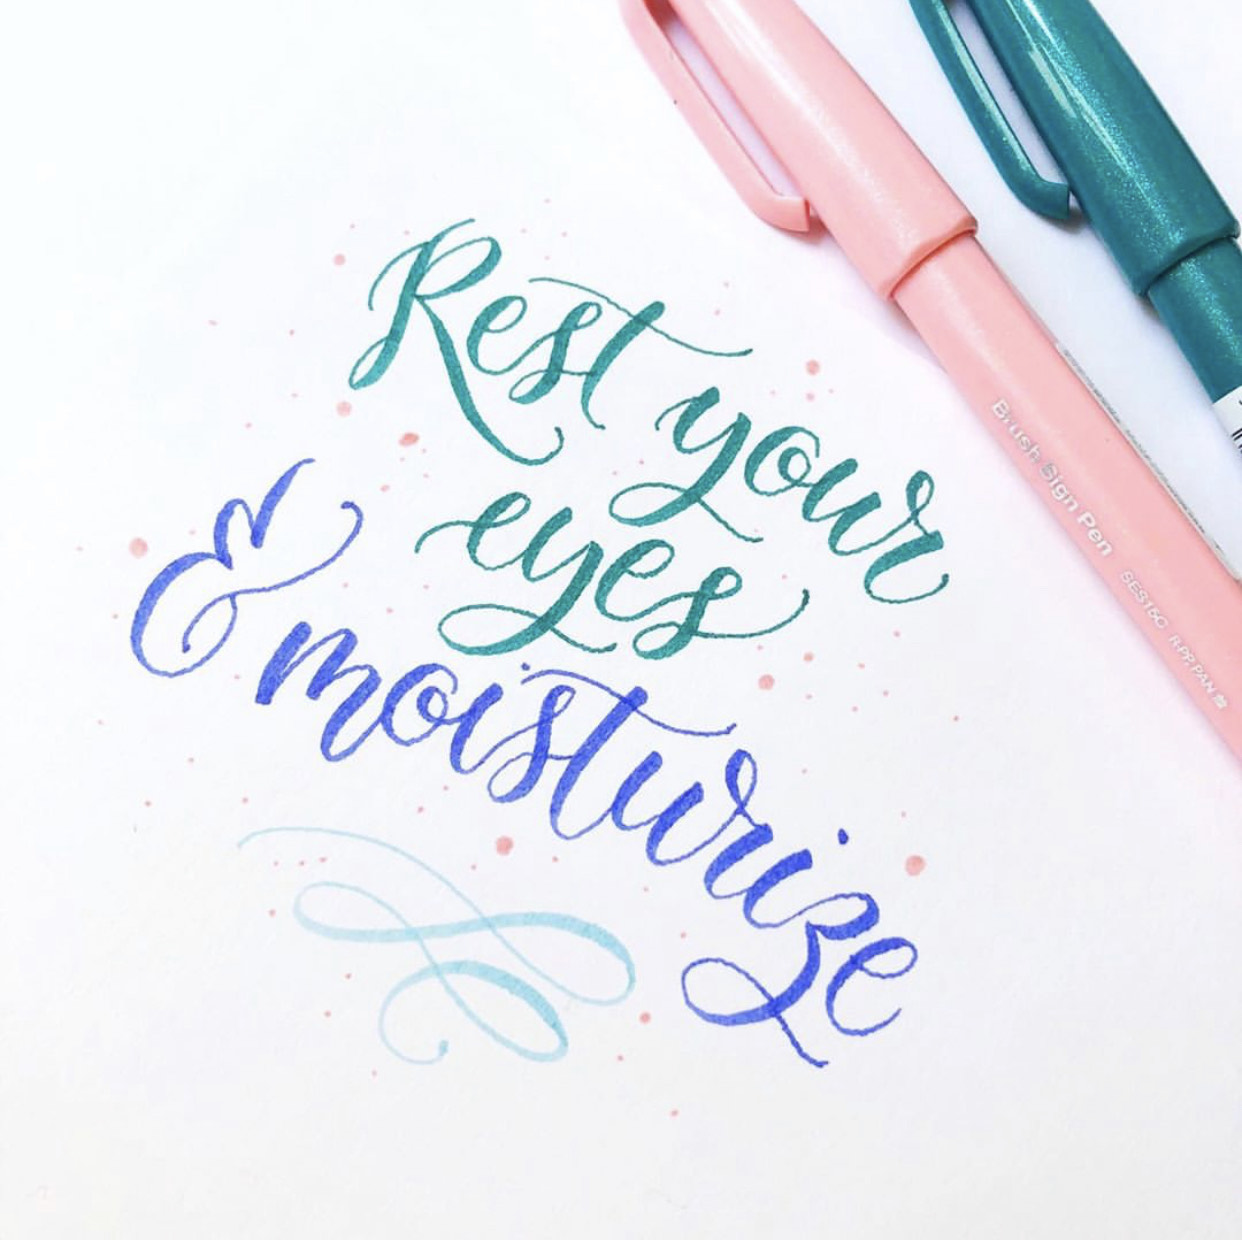 Rest your
eyes
& moisturize
Brush Sign Pen SES15C